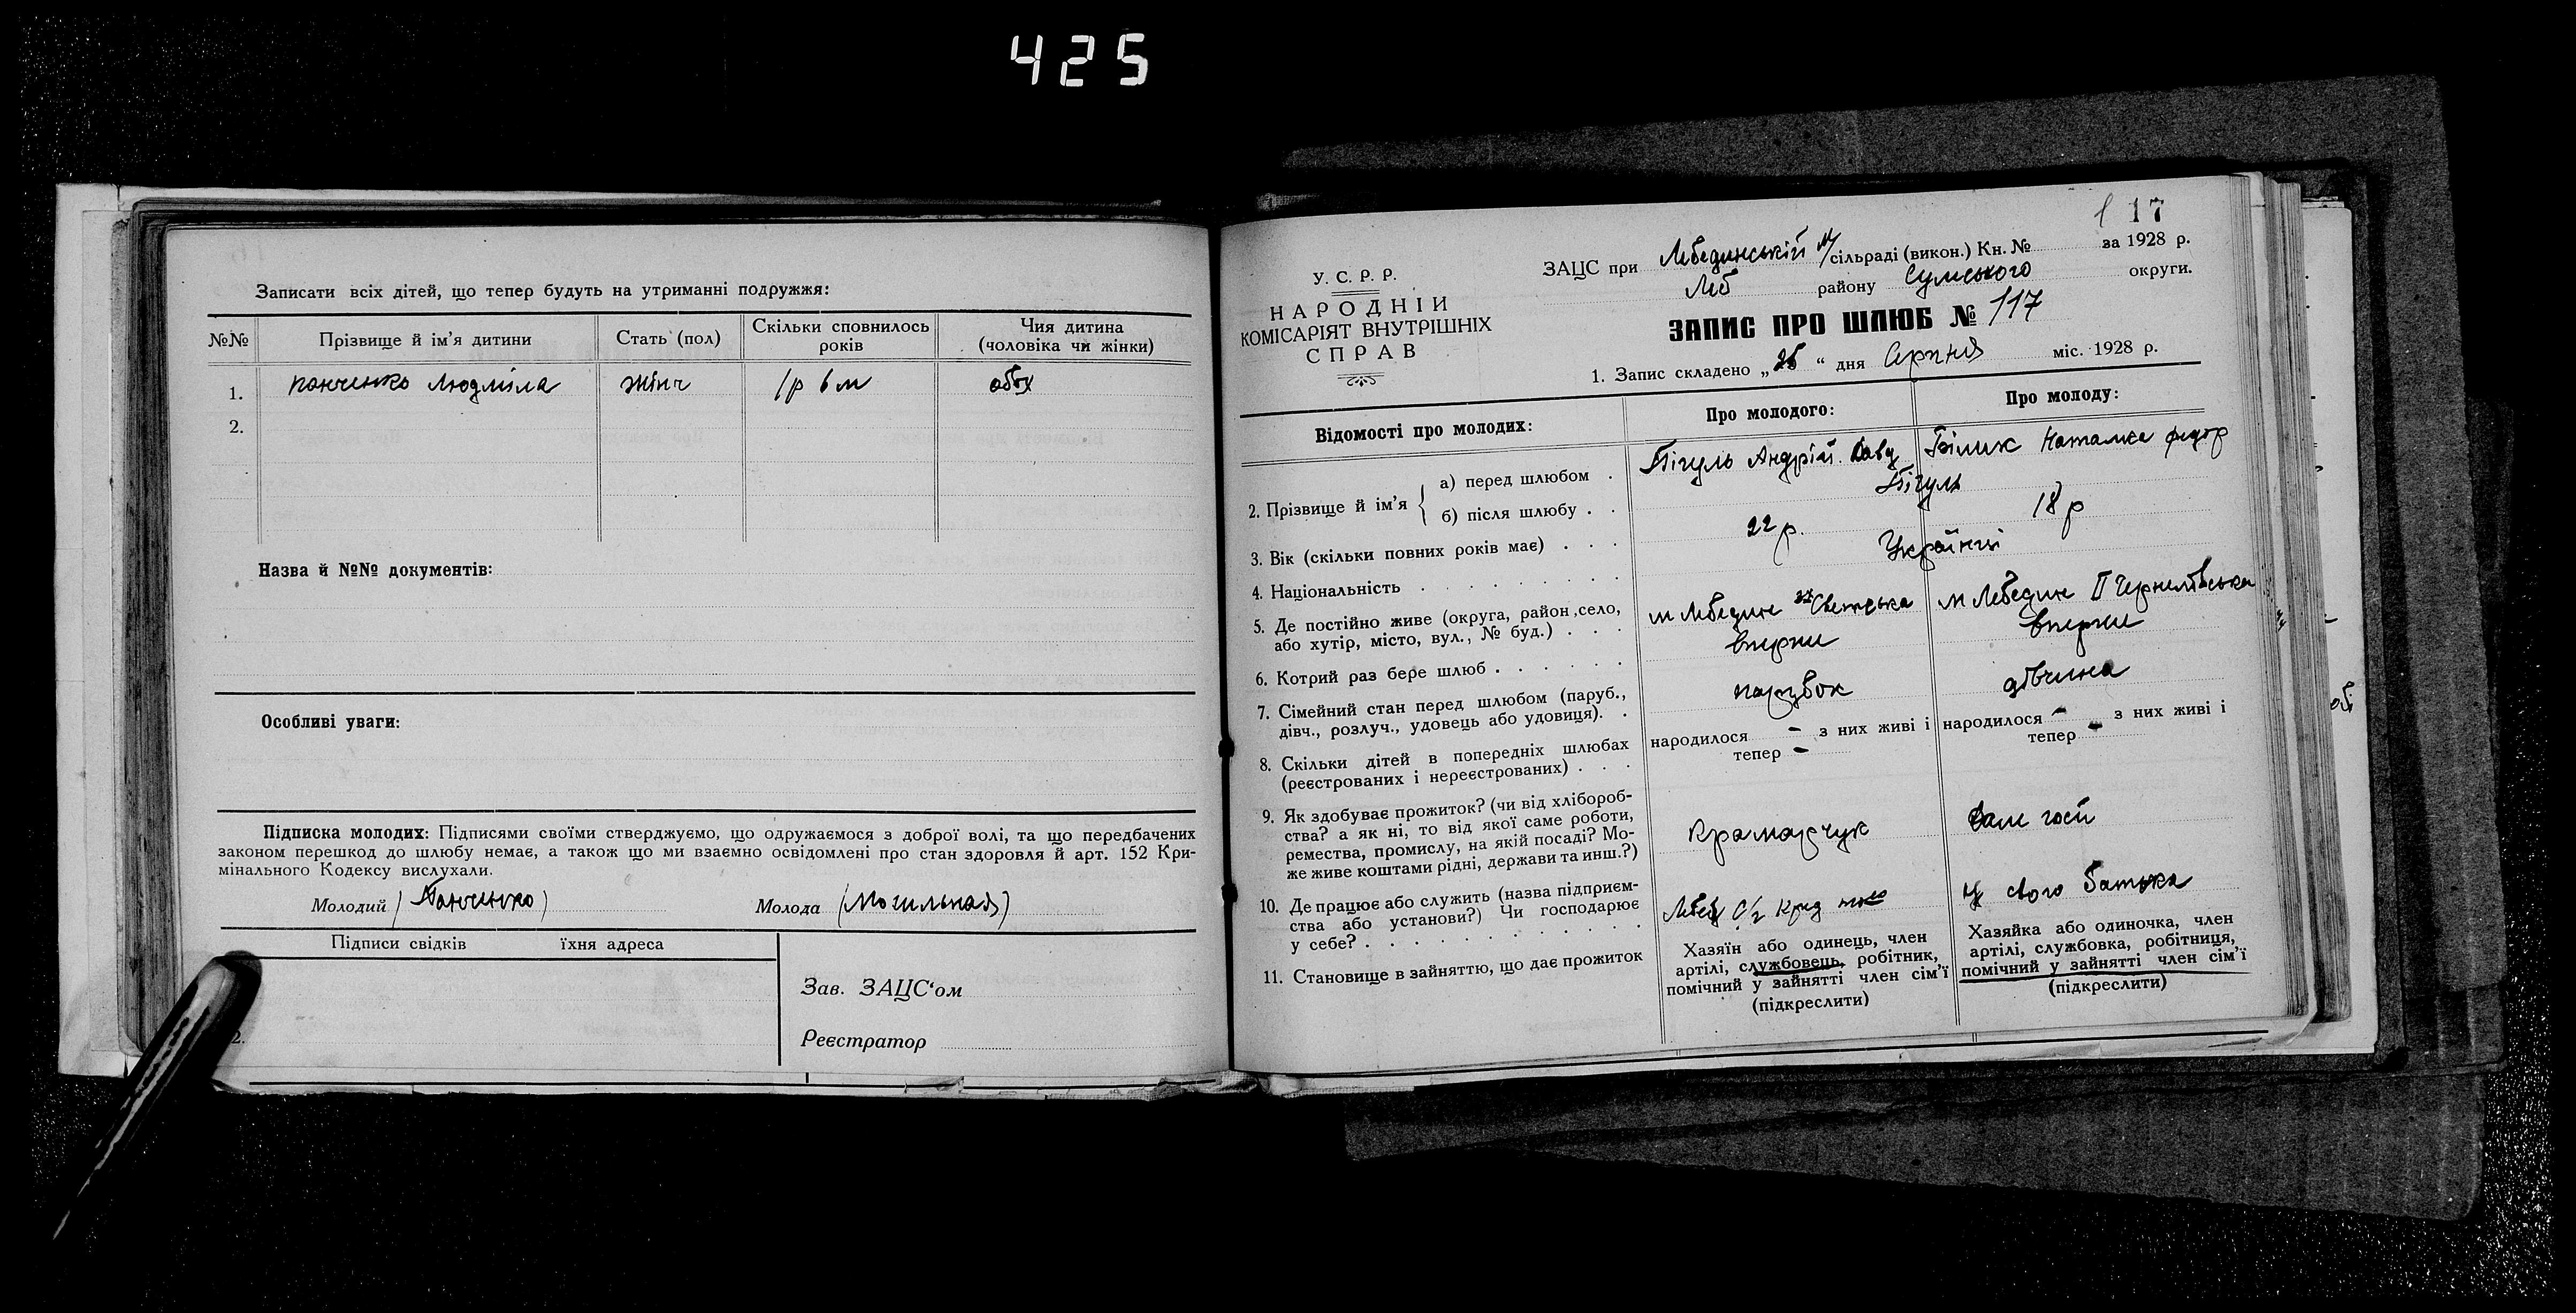 425
Записати всіх дітей, що тепер будуть на утриманні подружжя:
№№ Прізвище й ім'я дитини Стать (пол) Скільки сповнилось років Чия дитина (чоловіка чи жінки)
1. Панченко Людміла жінч 1р 6 м обох
2.
Назва й №№ документів:
Особливі уваги:
Підписка молодих: Підписями своїми стверджуємо, що одружаємося з доброї волі, та що передбачених
законом перешкод до шлюбу немає, а також що ми взаємно освідомлені про стан здоровля й арт. 152 Кри-
мінального Кодексу вислухали.
Молодий (Панченко) Молода (Могильная)
Підписи свідків їхня адреса
2.
Зав. ЗАЦС'ом
Реєстратор
117
У. С. Р. Р.
НАРОДНІЙ
КОМІСАРІЯТ ВНУТРІШНІХ
СПРАВ
ЗАЦС при Лебединській м/сільраді (викон.) Кн. № за 1928 р.
Леб району Сумського округи.
ЗАПИС ПРО ШЛЮБ № 117
1. Запис складено „ “ дня Серпня міс. 1928 р.
Відомості про молодих: Про молодого: Про молоду:
2. Прізвище й ім'я { а) перед шлюбом . Бігуль Андрій Давд Білик Наталка Федор
б) після шлюбу . . Бігуль
3. Вік (скільки повних років має) . . . 22 р. 18 р
4. Національність Українці
5. Де постійно живе (округа, район, село, м Лебедин м Лебедин ІІ
або хутір, місто, вул., № буд.) . . .
6. Котрий раз бере шлюб . . . . . . вперше вперше
7. Сімейний стан перед шлюбом (паруб., парубок дівчина
дівч., розлуч., удовець або удовиця). .
8. Скільки дітей в попередніх шлюбах народилося - з них живі і народилося - з них живі і
(реєстрованих і нереєстрованих) . . . тепер - тепер -
9. Як здобуває прожиток? (чи від хлібороб-
ства? а як ні, то від якої саме роботи,
ремества, промислу, на якій посаді? Мо-
же живе коштами рідні, держави та инш.?) Крамарчук
10. Де працює або служить (назва підприєм- у свого батька
ства або установи?) Чи господарює
у себе? . . . . . . . . . . . .
11. Становище в зайняттю, що дає прожиток
Хазяїн або одинець, член
артілі, службовець, робітник,
помічний у зайнятті член сім'ї
(підкреслити)
Хазяйка або одиночка, член
артілі, службовка, робітниця,
помічний у зайнятті член сім'ї
(підкреслити)